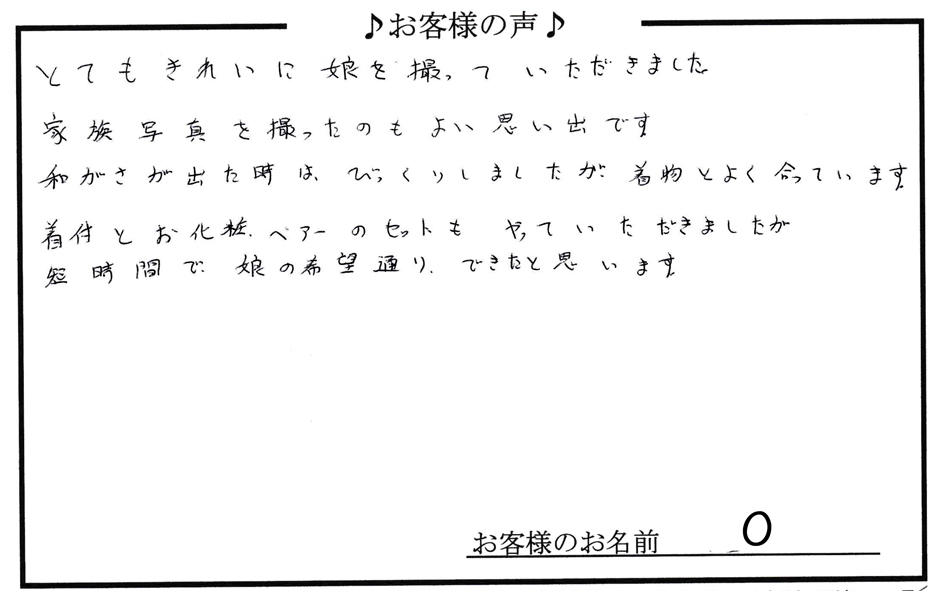 ♪お客様の声♪
とてもきれいに娘を撮っていただきました
家族写真を撮ったのもよい思い出です
和がさが出た時は、びっくりしましたが着物とよく合っています
着付とお化粧、ヘアーのセットもやっていただきましたが
短時間で娘の希望通り、できたと思います
お客様のお名前 O